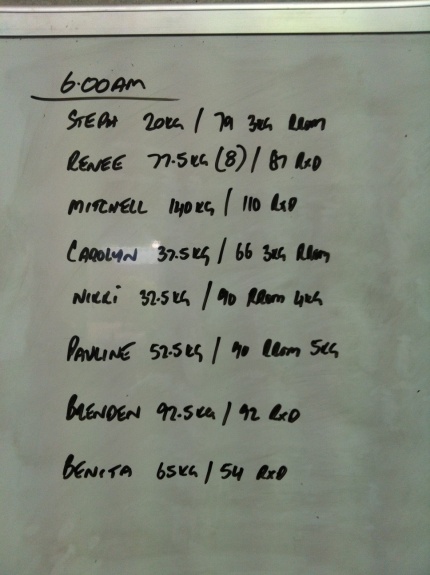 6.00AM
STEPH 20KG / 79 3KG RROM
RENEE 77.5KG (8) / 87 RXD
MITCHELL 140KG / 110 RXD
CAROLYN 37.5KG / 66 3KG RROM
NIKKI 32.5KG / 90 RROM 4KG
PAULINE 52.5KG / 90 RROM 5KG
BRENDEN 92.5KG / 92 RXD
BENITA 65KG / 54 RXD